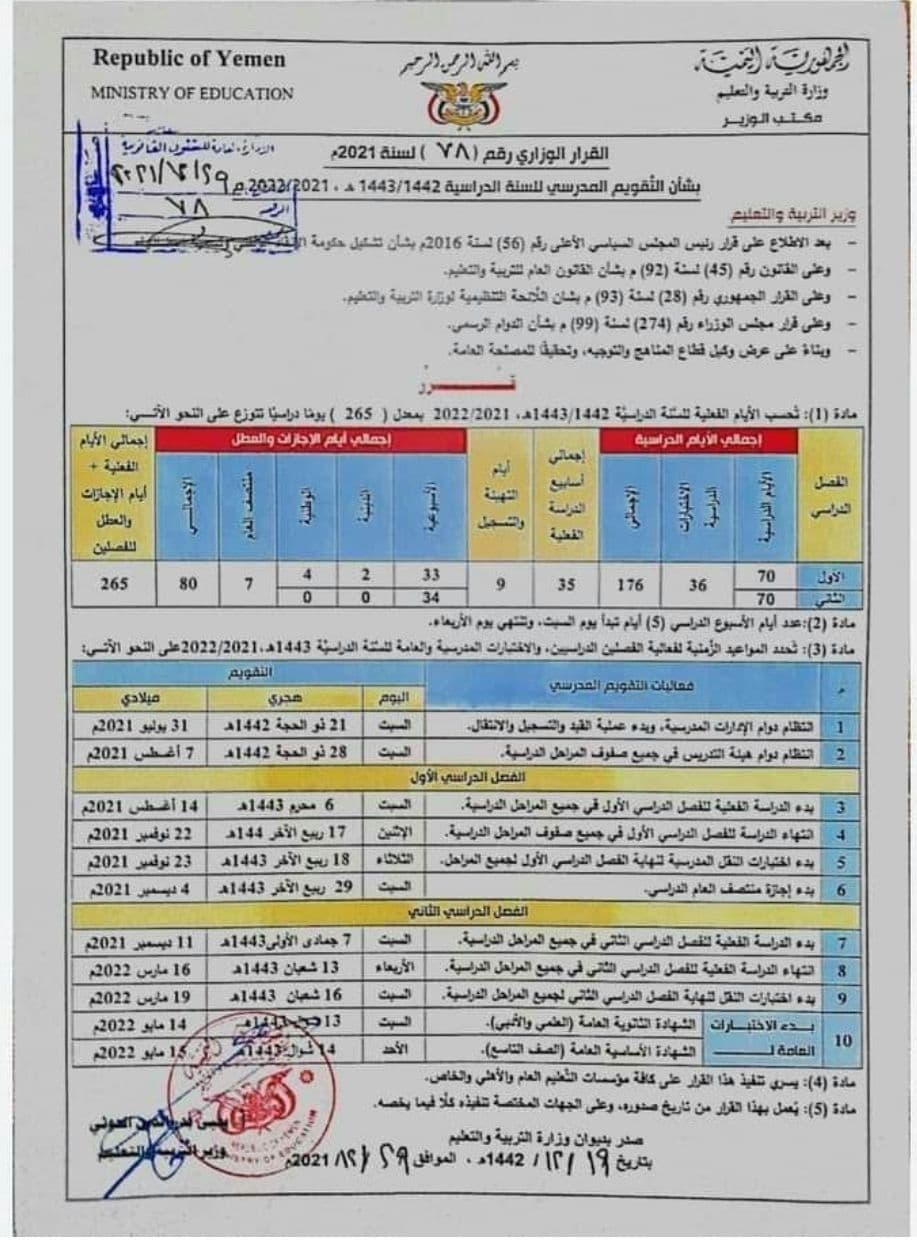 الجمهورية اليمنية
وزارة التربية والتعليم
مكتب الوزير
بسم الله الرحمن الرحيم
Republic of Yemen
MINISTRY OF EDUCATION
القرار الوزاري رقم (٧٨) لسنة 2021م
بشأن التقويم المدرسي للسنة الدراسية 1443/1442 هـ ، 2022/2021م
٧٨
وزير التربية والتعليم
- بعد الاطلاع على قرار رئيس المجلس السياسي الأعلى رقم (56) لسنة 2016م بشأن تشكيل حكومة
- وعلى القانون رقم (45) لسنة (92) م بشأن القانون العام للتربية والتعليم.
- وعلى القرار الجمهوري رقم (28) لسنة (93) م بشأن اللائحة التنظيمية لوزارة التربية والتعليم.
- وعلى قرار مجلس الوزراء رقم (274) لسنة (99) م بشأن الدوام الرسمي.
- وبناءً على عرض وكيل قطاع المناهج والتوجيه، وتحقيقًا للمصلحة العامة.
قـــرر
مادة (1): تُحسب الأيام الفعلية للسنة الدراسية 1443/1442هـ، 2022/2021 بمعدل ( 265 ) يومًا دراسيًا تتوزع على النحو الآتي:
الفصل الدراسي
إجمالي الأيام الدراسية
الأيام الدراسية
الاختبارات الدراسية
الإجمالي
إجمالي أسابيع الدراسة الفعلية
أيام التهيئة والتسجيل
إجمالي أيام الإجازات والعطل
الأسبوعية
الدينية
الوطنية
منتصف العام
الإجمالي
إجمالي الأيام الفعلية + أيام الإجازات والعطل للفصلين
الأول 70 36 176 35 9 33 2 4 7 80 265
الثاني 70 34 0 0
مادة (2): عدد أيام الأسبوع الدراسي (5) أيام تبدأ يوم السبت، وتنتهي يوم الأربعاء.
مادة (3): تُحدد المواعيد الزمنية لفعالية الفصلين الدراسيين، والاختبارات المدرسية والعامة للسنة الدراسية 1443هـ،2022/2021على النحو الآتي:
م فعاليات التقويم المدرسي التقويم
اليوم هجري ميلادي
1 انتظام دوام الإدارات المدرسية، وبدء عملية القيد والتسجيل والانتقال. السبت 21 ذو الحجة 1442هـ 31 يوليو 2021م
2 انتظام دوام هيئة التدريس في جميع صفوف المراحل الدراسية. السبت 28 ذو الحجة 1442هـ 7 أغسطس 2021م
الفصل الدراسي الأول
3 بدء الدراسة الفعلية للفصل الدراسي الأول في جميع المراحل الدراسية. السبت 6 محرم 1443هـ 14 أغسطس 2021م
4 انتهاء الدراسة للفصل الدراسي الأول في جميع صفوف المراحل الدراسية. الإثنين 17 ربيع الآخر 144هـ 22 نوفمبر 2021م
5 بدء اختبارات النقل المدرسية لنهاية الفصل الدراسي الأول لجميع المراحل. الثلاثاء 18 ربيع الآخر 1443هـ 23 نوفمبر 2021م
6 بدء إجازة منتصف العام الدراسي. السبت 29 ربيع الآخر 1443هـ 4 ديسمبر 2021م
الفصل الدراسي الثاني
7 بدء الدراسة الفعلية للفصل الدراسي الثاني في جميع المراحل الدراسية. السبت 7 جمادى الأولى1443هـ 11 ديسمبر 2021م
8 انتهاء الدراسة الفعلية للفصل الدراسي الثاني في جميع المراحل الدراسية. الأربعاء 13 شعبان 1443هـ 16 مارس 2022م
9 بدء اختبارات النقل لنهاية الفصل الدراسي الثاني لجميع المراحل الدراسية. السبت 16 شعبان 1443هـ 19 مارس 2022م
10 بدء الاختبارات العامة لـ الشهادة الثانوية العامة (العلمي والأدبي). السبت 13 14 مايو 2022م
الشهادة الأساسية العامة (الصف التاسع). الأحد 14 شوال 1443هـ 15 مايو 2022م
مادة (4): يسري تنفيذ هذا القرار على كافة مؤسسات التعليم العام والأهلي والخاص.
مادة (5): يُعمل بهذا القرار من تاريخ صدوره، وعلى الجهات المختصة تنفيذه كلًا فيما يخصه.
صدر بديوان وزارة التربية والتعليم
بتاريخ ١٩/١٢/ 1442هـ ، الموافق
وزير التربية والتعليم